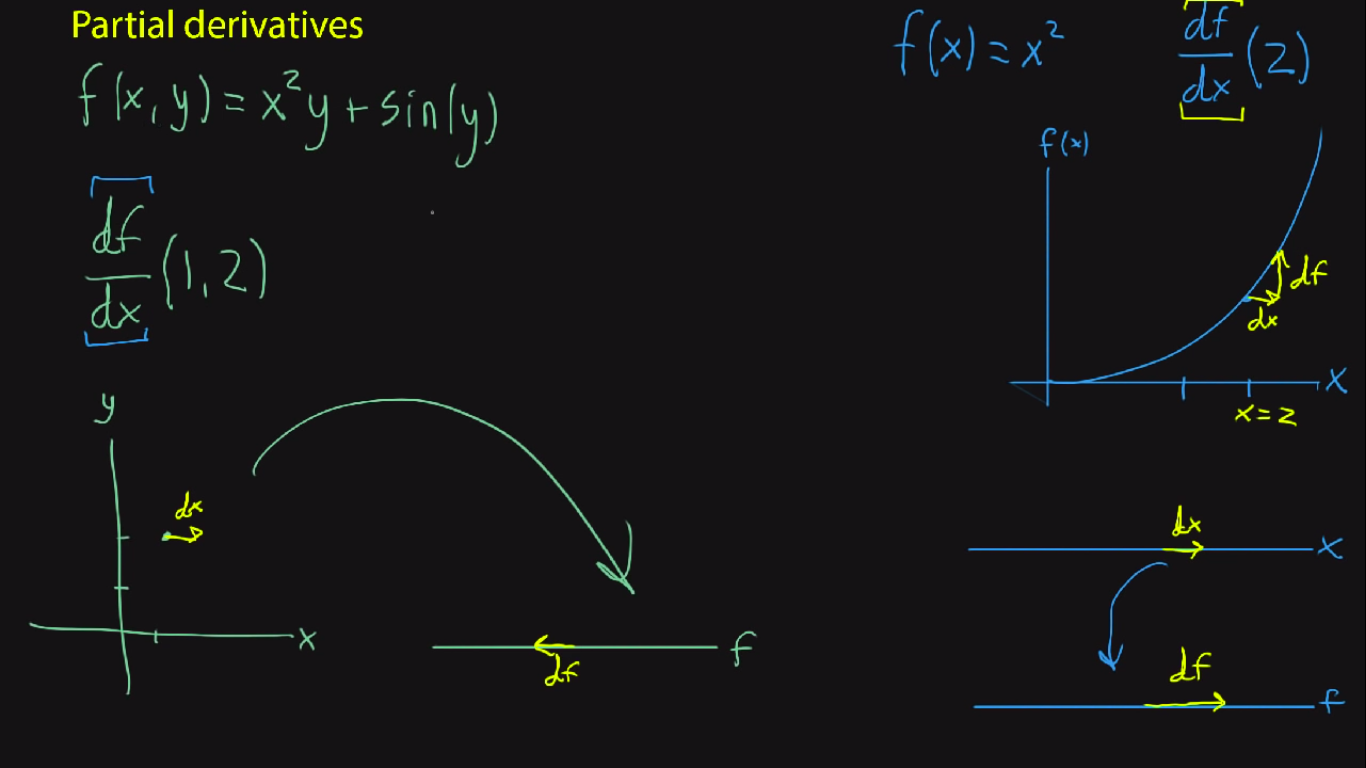 Partial derivatives
f(x, y) = x²y + sin(y)
df/dx (1, 2)
y
dx
x
df
f
f(x) = x²
df/dx (2)
f(x)
df
dx
x
x = 2
dx
x
df
f